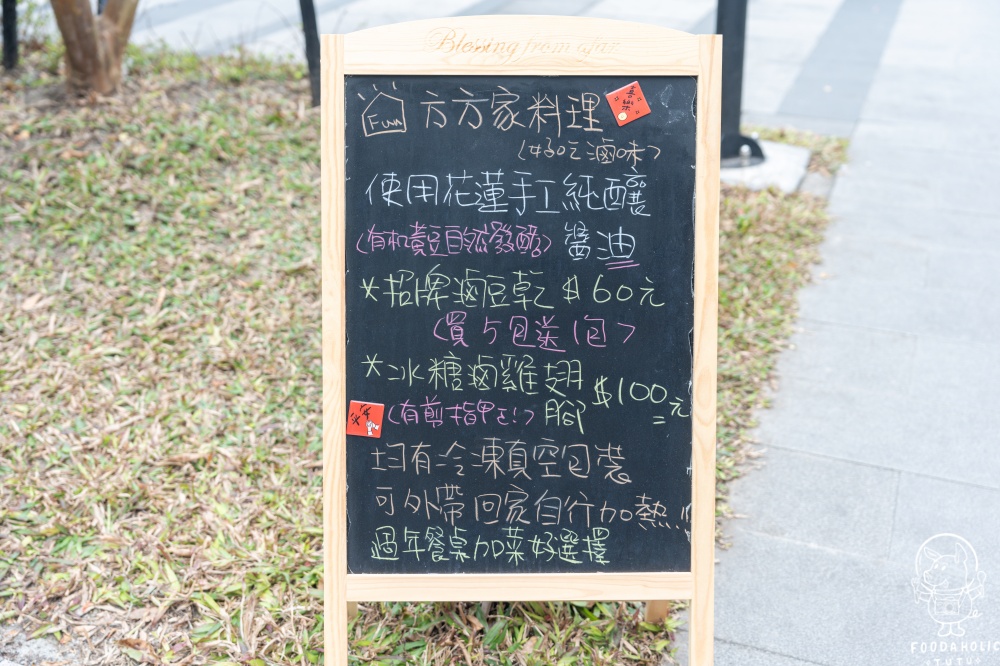 Blessing from afar
Fun 方方家料理
(好吃滷味)
使用花蓮手工純釀
(有机黃豆自然發酵) 醬油
*招牌滷豆乾 $60元
(買5包送1包)
*冰糖滷雞翅 $100元
(有剪指甲!) 腳
均有冷凍真空包裝
可外帶回家自行加熱!!
過年餐桌加菜好選擇
FOODAHOLIC
TUTU